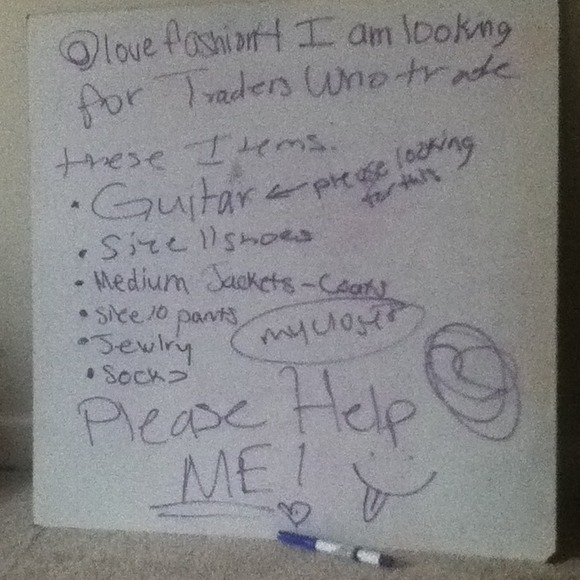 @lovefashion41 I am looking
for Traders who trade
these Items.
• Guitar ← please looking
for this
• Size 11 shoes
• Medium Jackets - Coats
• Size 10 pants
my closet
• Jewlry
• Socks
Please Help
ME!